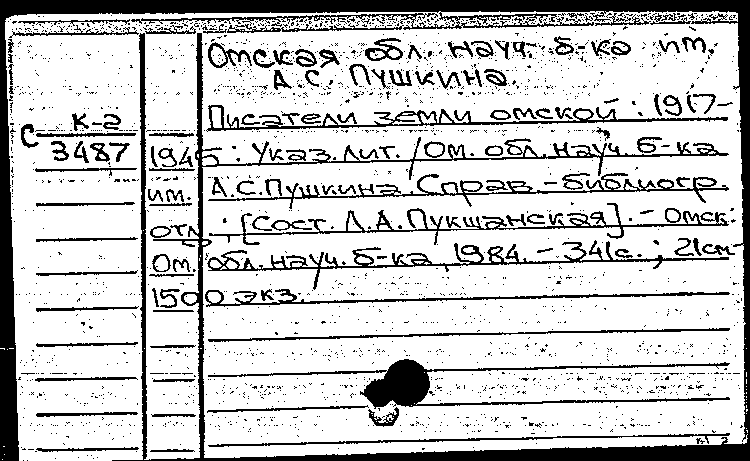 Омская обл. науч. б-ка им.
А.С. Пушкина.
Писатели земли омской : 1917-
К-2
С 3487
1945 : Указ. лит. / Ом. обл. науч. б-ка
им. А.С. Пушкина. Справ.-библиогр.
отд. ; [Сост. Л.А. Пукшанская]. - Омск :
Ом. обл. науч. б-ка, 1984. - 341с. ; 21см-
1500 экз.